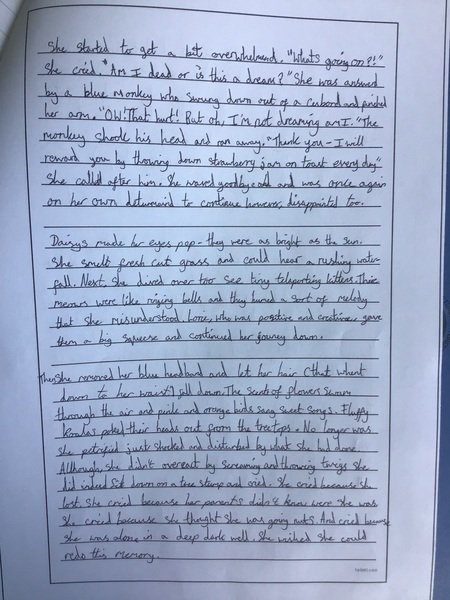 She started to get a bit overwhelmend. "Whats going on?!"
She cried. "Am I dead or is this a dream?" She was answerd
by a blue monkey who swung down out of a cubord and pinched
her arm. "OW! That hurt! But oh, I'm not dreaming am I." The
monkey shook his head and ran away. "Thank you - I will
reward you by throwing down strawberry jam on toast every day"
She called after him. She waved goodbye and was once again
on her own determind to continue however, disappointed too.
Daisys made her eyes pop - they were as bright as the sun.
She smelt fresh cut grass and could hear a rushing water
fall. Next, she dived over too see tiny teleporting kittens. Thier
meows were like ringing bells and they hummed a sort of melody
that she misunderstood. who was positive and creative, gave
them a big squeese and continued her journey down.
Then She removed her blue headband and let her hair (that whent
down to her waist) fall down. The scents of flowers swum
through the air and pink and orange birds sang sweet songs. Fluffy
koalas poked their heads out from the treetops. No longer was
she petrified just shocked and disturbed by what she had done.
Although, she didn't overeact by screaming and throwing things she
did indeed sit down on a tree stump and cried. She cried because she
lost. She cried because her parents didn't know were she was.
She cried because she thought she was going nuts. And cried because
she was alone in a deep dark well. She wished she could
redo this memory.
twinkl.com